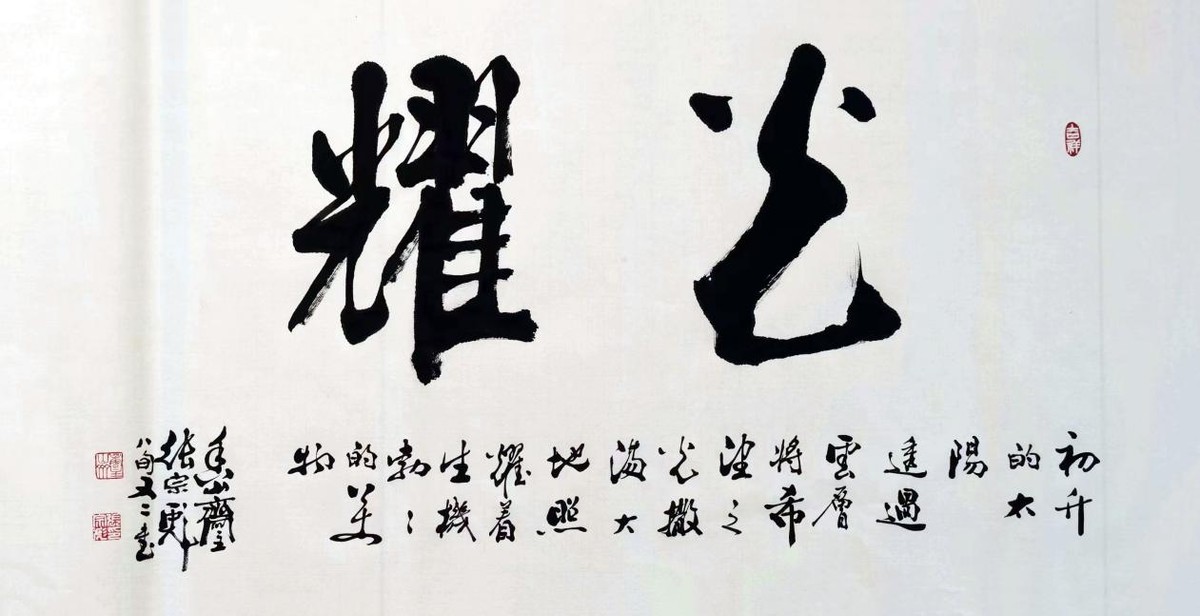 吉祥
光耀
初升
的太
陽
透過
雲層
將希
望之
光撒
滿大
地照
耀着
生機
勃〻
的萬
物
香山齋
張宗彪
八旬又二書